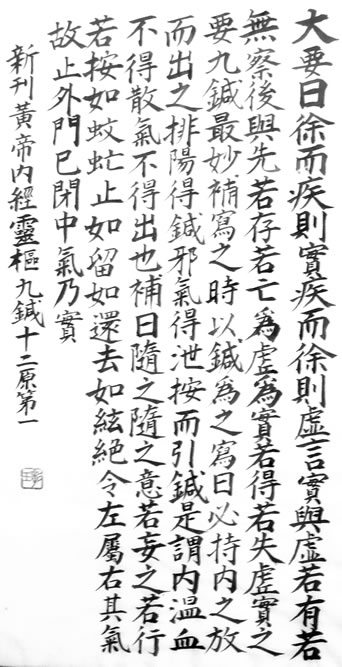 大要曰徐而疾則實疾而徐則虛言實與虛若有若
無察後與先若存若亡為虛為實若得若失虛實之
要九鍼最妙補寫之時以鍼為之寫曰必持内之放
而出之排陽得鍼邪氣得泄按而引鍼是謂内溫血
不得散氣不得出也補曰隨之隨之意若妄之若行
若按如蚊虻止如留如還去如絃絶令左屬右其氣
故止外門已閉中氣乃實
新刊黃帝内經靈樞九鍼十二原第一